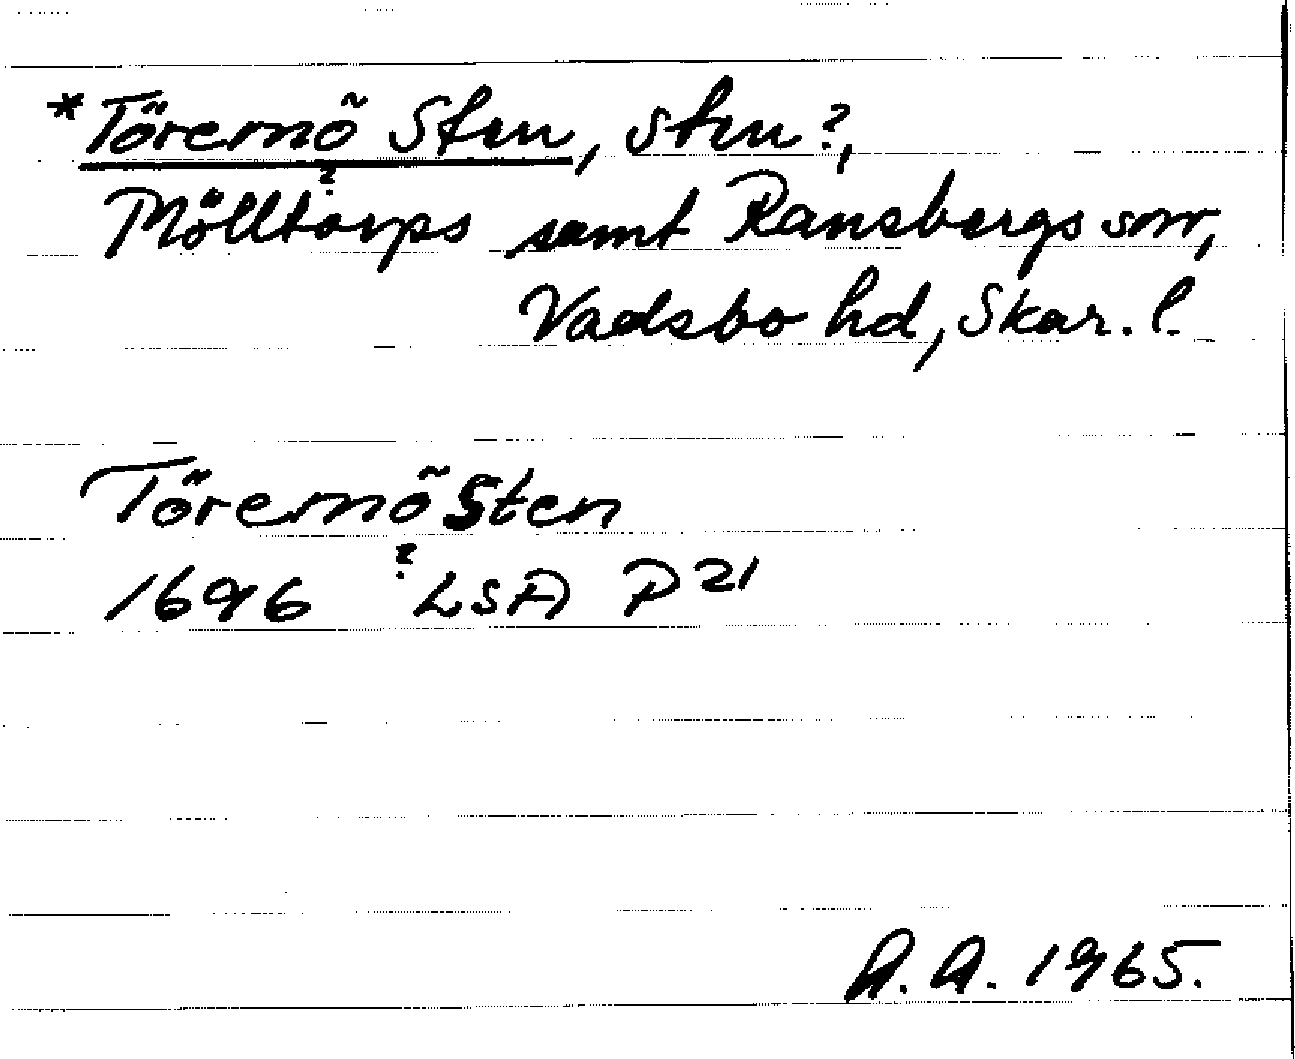 *Töremõ Sten, sten?,
?
Mölltorps samt Ransbergs snr,
Vadsbo hd, Skar. l.
TöremõSten
?
1696 LSA P 21
A. A. 1965.